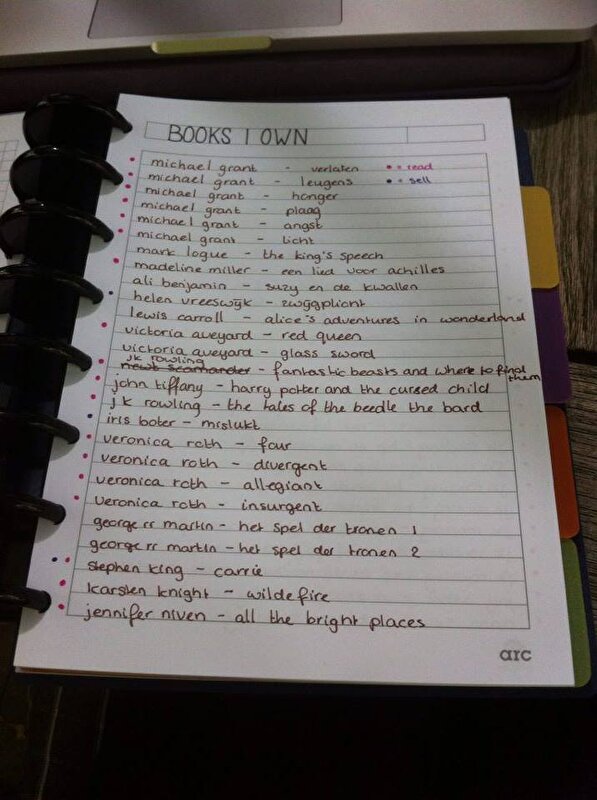 BOOKS I OWN
michael grant - verlaten • = read
michael grant - leugens • = sell
michael grant - honger
michael grant - plaag
michael grant - angst
michael grant - licht
mark logue - the king's speech
madeline miller - een lied voor achilles
ali benjamin - suzy en de kwallen
helen vreeswijk - zwijgplicht
lewis carroll - alice's adventures in wonderland
victoria aveyard - red queen
victoria aveyard - glass sword
jk rowling
newt scamander - fantastic beasts and where to find them
john tiffany - harry potter and the cursed child
jk rowling - the tales of the beedle the bard
iris boter - mislukt
veronica roth - four
veronica roth - divergent
veronica roth - allegiant
veronica roth - insurgent
george rr martin - het spel der tronen 1
george rr martin - het spel der tronen 2
stephen king - carrie
karsten knight - wildefire
jennifer niven - all the bright places
arc